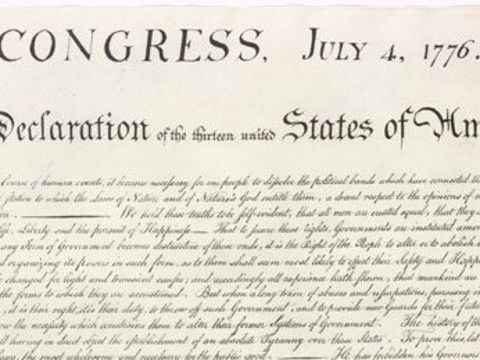 CONGRESS, July 4, 1776.
Declaration of the thirteen united States of Am
Course of human events, it becomes necessary for one people to dissolve the political bands which have connected th
station to which the Laws of Nature and of Nature's God entitle them, a decent respect to the opinions of m
We hold these truths to be self-evident, that all men are created equal, that they a
Life, Liberty and the pursuit of Happiness. — That to secure these rights, Governments are instituted among
any Form of Government becomes destructive of these ends, it is the Right of the People to alter or to abolish i
and organizing its powers in such form, as to them shall seem most likely to effect their Safety and Happin
changed for light and transient causes; and accordingly all experience hath shewn, that mankind are m
the forms to which they are accustomed. But when a long train of abuses and usurpations, pursuing in
it is their right, it is their duty, to throw off such Government, and to provide new Guards for their futu
now the necessity which constrains them to alter their former Systems of Government. The history of th
all having in direct object the establishment of an absolute Tyranny over these States. To prove this, let
the most wholesome and necessary for the public good. He has forbidden his Governo